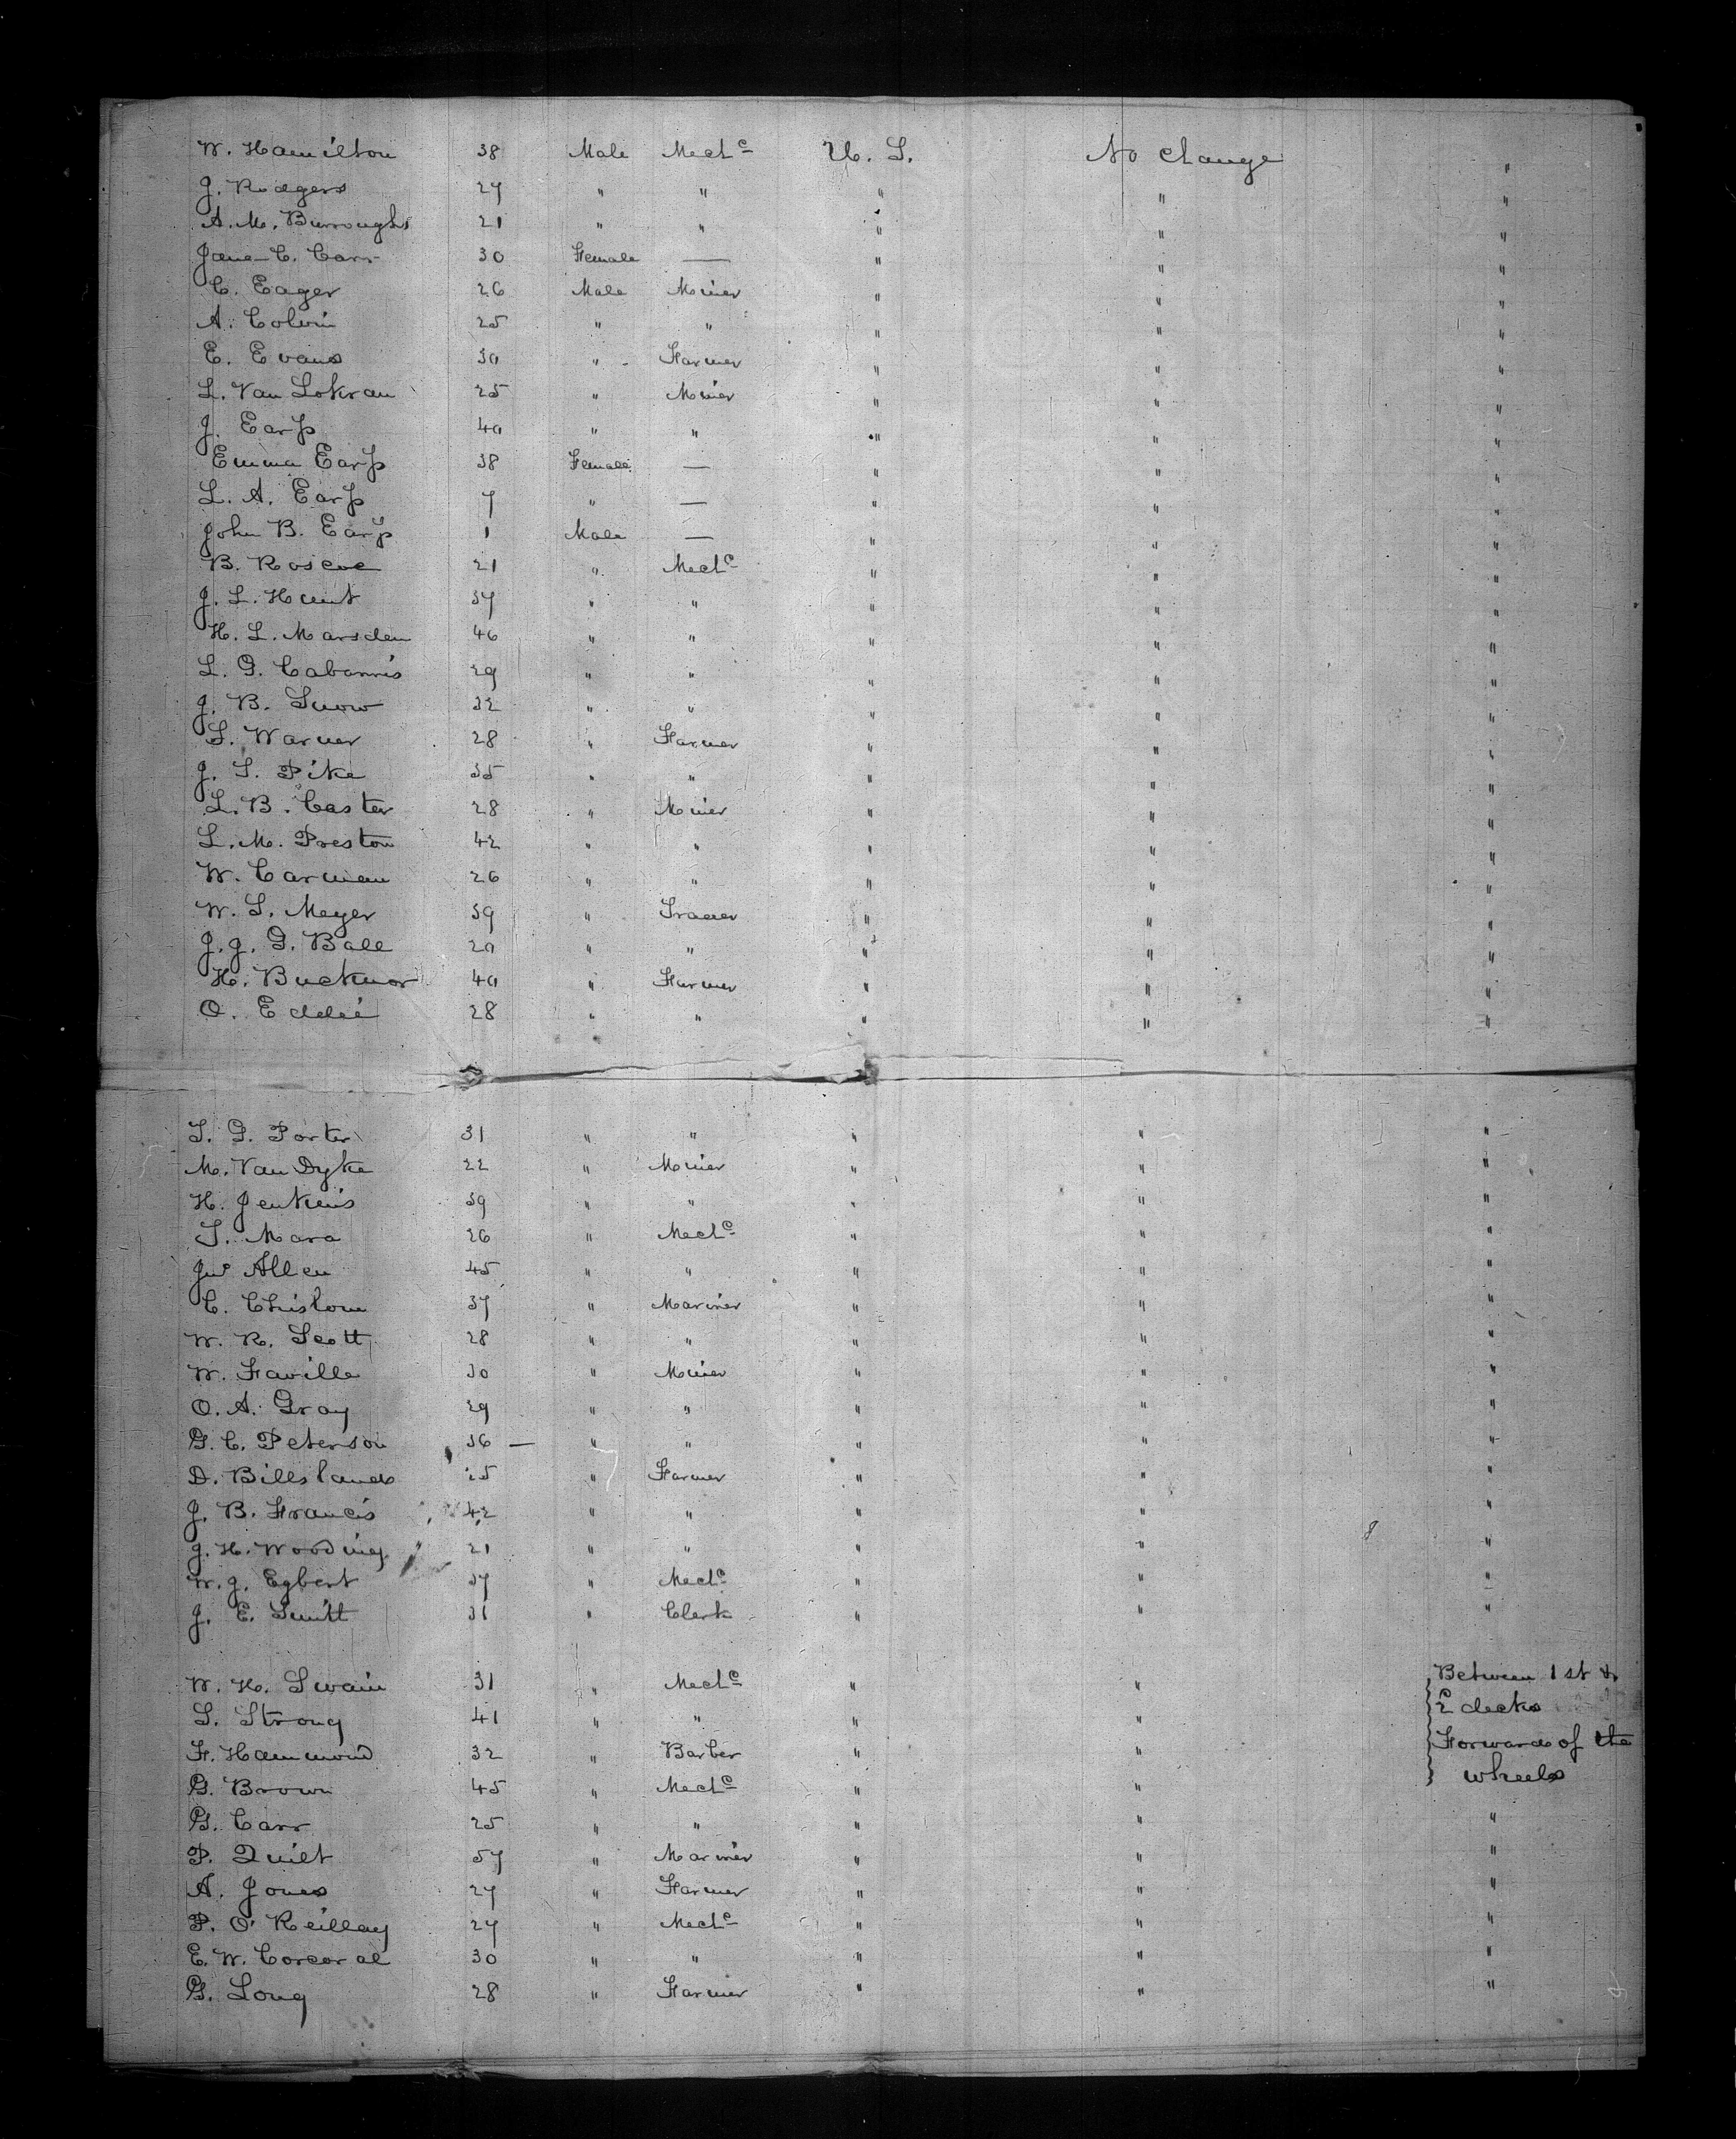 W. Hamilton 38 Male Mech<sup>c</sup> U. S. No change "
J. Rodgers 27 " " " " "
A. M. Burroughs 21 " " " " "
Jane C. Carr 30 Female — " " "
C. Eager 26 Male Miner " " "
A. Colvin 25 " " " " "
E. Evans 30 " Farmer " " "
L. Van Lokran 25 " Miner " " "
J. Earp 40 " " " " "
Emma Earp 38 Female — " " "
L. A. Earp 7 " — " " "
John B. Earp 1 Male — " " "
B. Roscoe 21 " Mech<sup>c</sup> " " "
J. L. Hunt 37 " " " " "
H. L. Marsden 46 " " " " "
L. G. Cabannis 29 " " " " "
J. B. Snow 32 " " " " "
S. Warner 28 " Farmer " " "
J. S. Pike 35 " " " " "
L. B. Caster 28 " Miner " " "
L. M. Preston 42 " " " " "
W. Carman 26 " " " " "
W. S. Meyer 39 " Trader " " "
J. J. G. Ball 20 " " " " "
H. Bucknor 40 " Farmer " " "
O. Eddie 28 " " " " "
S. G. Porter 31 " " " " "
M. Van Dyke 22 " Miner " " "
H. Jenkins 39 " " " " "
T. Mara 26 " Mech<sup>c</sup> " " "
Jn<sup>o</sup> Allen 45 " " " " "
C. Chislom 37 " Mariner " " "
W. R. Scott 28 " " " " "
W. Faville 30 " Miner " " "
O. A. Gray 29 " " " " "
G. C. Peterson 36 — " " " " "
D. Billslands 25 " Farmer " " "
J. B. Francis 42 " " " " "
J. H. Wooding 21 " " " " "
W. J. Egbert 37 " Mech<sup>c</sup> " " "
J. E. Smitt 31 " Clerk " " "
W. H. Swain 31 " Mech<sup>c</sup> " " Between 1st &
S. Strong 41 " " " " 2 decks
F. Hammond 32 " Barber " " Forward of the
G. Brown 45 " Mech<sup>c</sup> " " wheels
G. Carr 25 " " " " "
P. Quilt 57 " Mariner " " "
A. Jones 27 " Farmer " " "
P. O'Reillay 27 " Mech<sup>c</sup> " " "
E. W. Corcoral 30 " " " " "
G. Long 28 " Farmer " " "